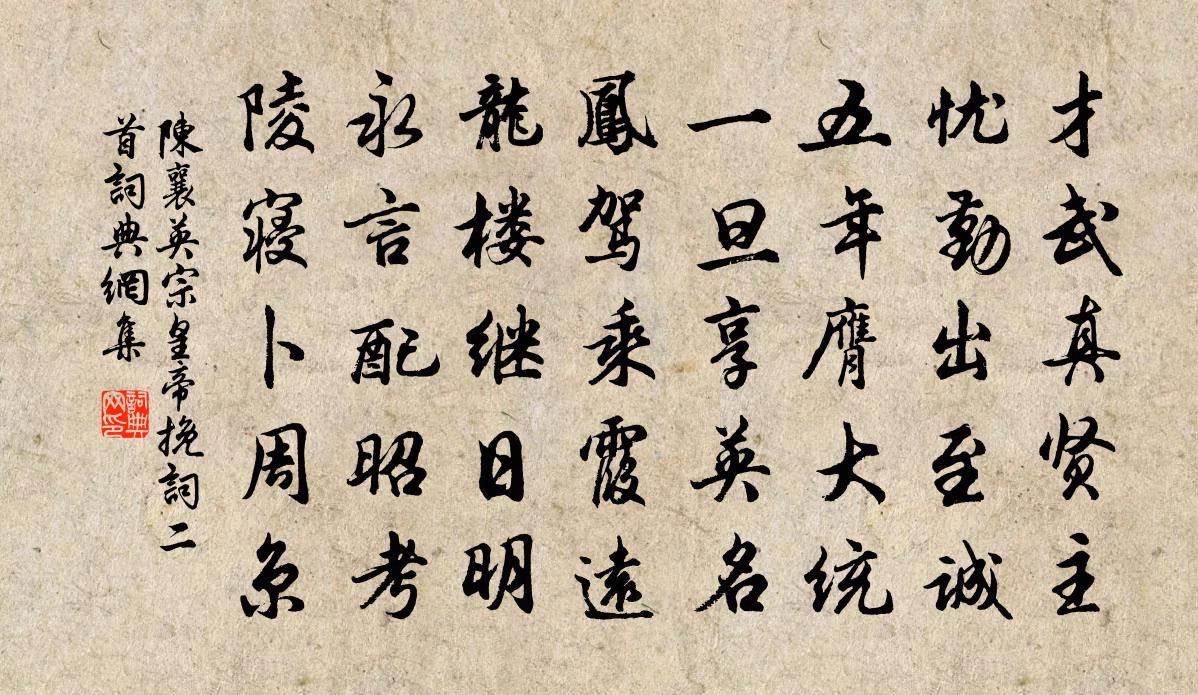 才武真贤主
忧勤出至诚
五年膺大统
一旦享英名
鳳驾乘霞遠
龍楼继日明
永言配昭考
陵寝卜周京
陳襄英宗皇帝挽詞二
首詞典網集
詞典
网印